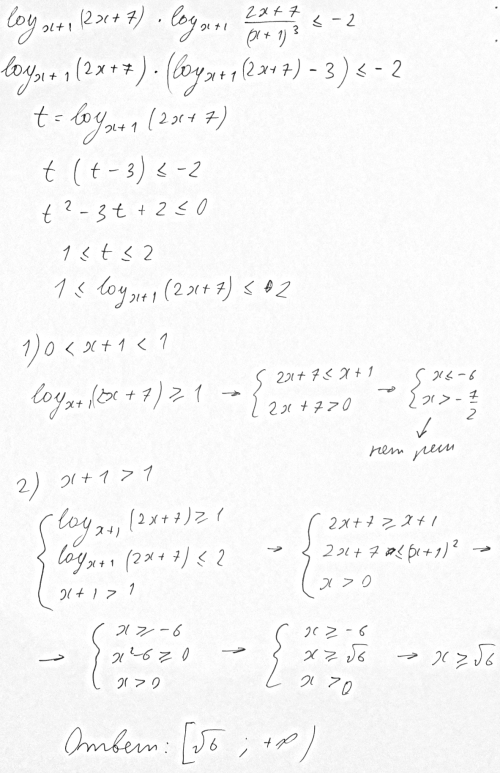 log_{x+1}(2x+7) · log_{x+1} \frac{2x+7}{(x+1)^3} ≤ -2
log_{x+1}(2x+7) · (log_{x+1}(2x+7) - 3) ≤ -2
t = log_{x+1}(2x+7)
t (t-3) ≤ -2
t^2 - 3t + 2 ≤ 0
1 ≤ t ≤ 2
1 ≤ log_{x+1}(2x+7) ≤ 2
1) 0 < x+1 < 1
log_{x+1}(2x+7) ≥ 1 → { 2x+7 ≤ x+1 ; 2x+7 > 0 → { x ≤ -6 ; x > -\frac{7}{2}
↓
нет реш
2) x+1 > 1
{ log_{x+1}(2x+7) ≥ 1 ; log_{x+1}(2x+7) ≤ 2 ; x+1 > 1 → { 2x+7 ≥ x+1 ; 2x+7 ≤ (x+1)^2 ; x > 0 →
→ { x ≥ -6 ; x^2-6 ≥ 0 ; x > 0 → { x ≥ -6 ; x ≥ √6 ; x > 0 → x ≥ √6
Ответ: [√6 ; +∞)